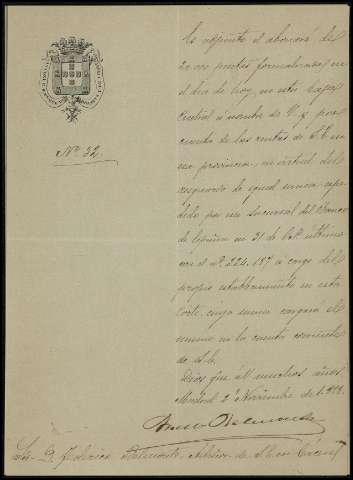 Nº 32.
Es adjunto el abonaré de
20.000 pesetas formalizado en
el dia de hoy, en esta Caja
Central á nombre de V. y por
cuenta de las rentas de S. E. en
esa provincia, en virtud del
resguardo de igual suma espe-
dido por esa Sucursal del Banco
de España en 31 de último
con el nº 224.187 á cargo del
propio establecimiento en esta
Corte, cuya suma cargará el
mismo en la cuenta corriente
de S. E.
Dios gue á V. muchos años
Madrid 2 de Noviembre de
Belmonte
Sr. D. Federico Belmonte, Admor. de S. E. en